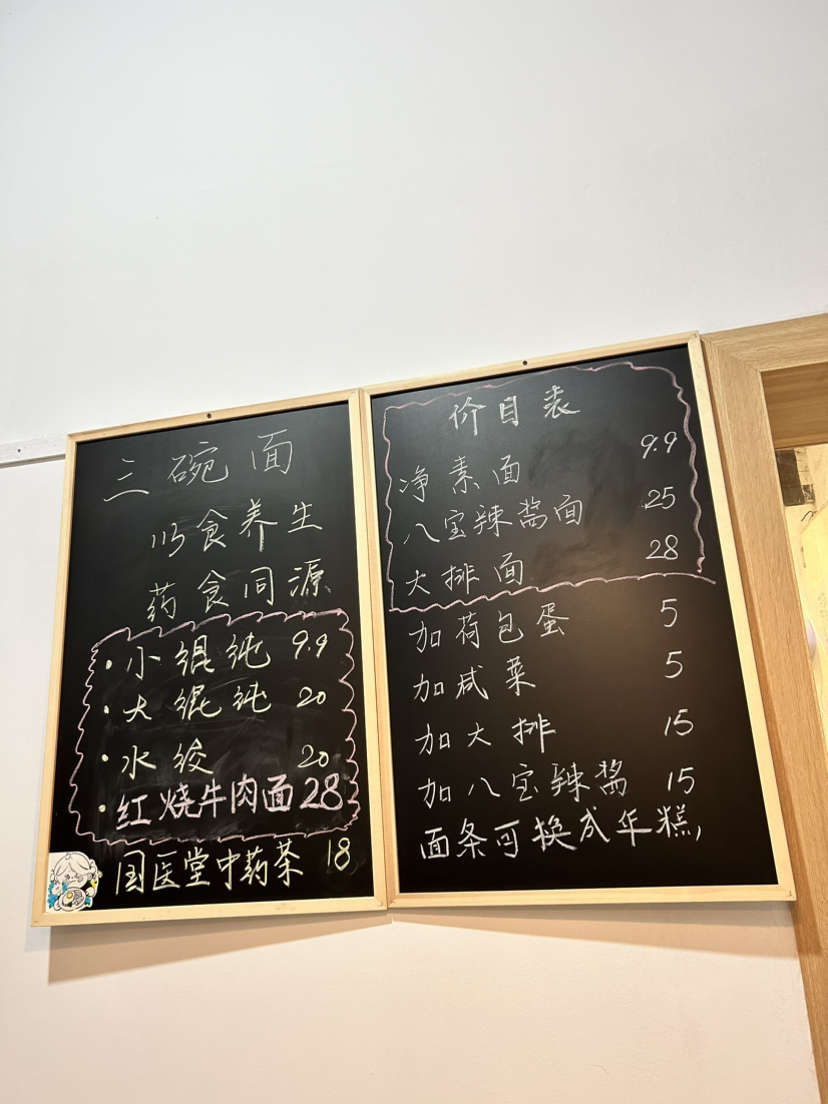 三碗面
吗食养生
药食同源
·小緄纯 9.9
·大緄纯 20
·水绞 20
·红烧牛肉面 28
国医堂中药茶 18
价目表
净素面 9.9
八宝辣酱面 25
大排面 28
加荷包蛋 5
加咸菜 5
加大排 15
加八宝辣酱 15
面条可换成年糕,